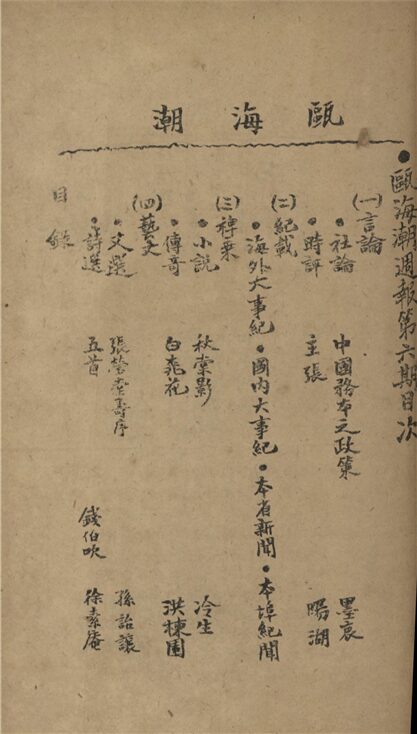 甌海潮
●甌海潮週報第六期目次
(一)言論
●社論 中國務本之政策 墨哀
●時評 主張 暘湖
(二)紀載
●海外大事紀●國內大事紀●本省新聞●本埠紀聞
(三)稗乘
●小説 秋棠影 冷生
●傳奇 白桃花 洪楝園
(四)藝文
●文選 張壽序 孫詒讓
●詩選 五首 錢伯吹 徐素庵
目錄